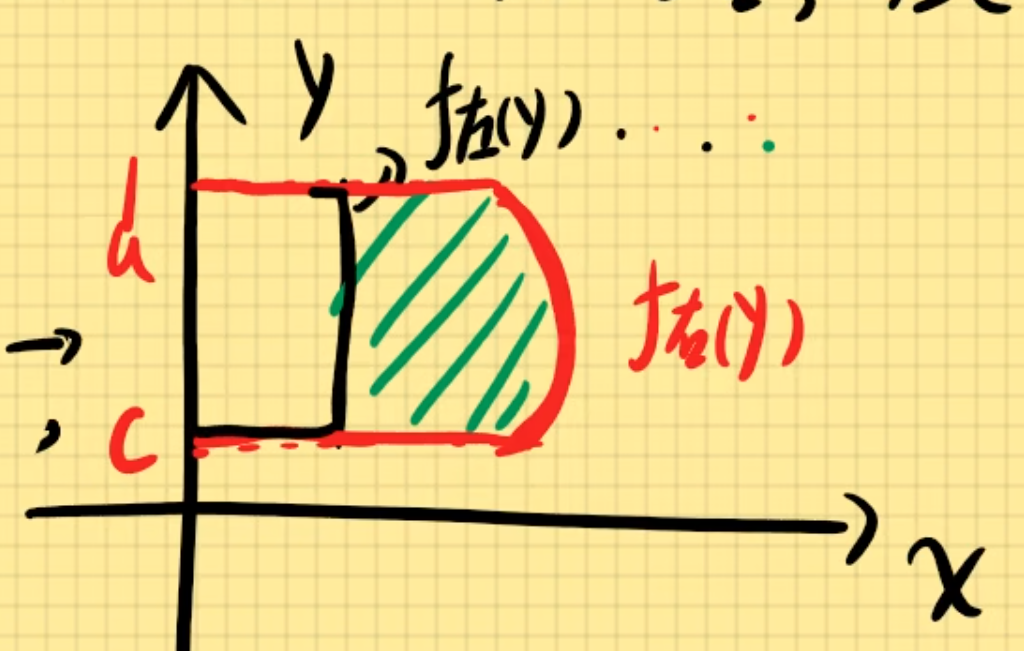 y f左(y)
d
f右(y)
c
x